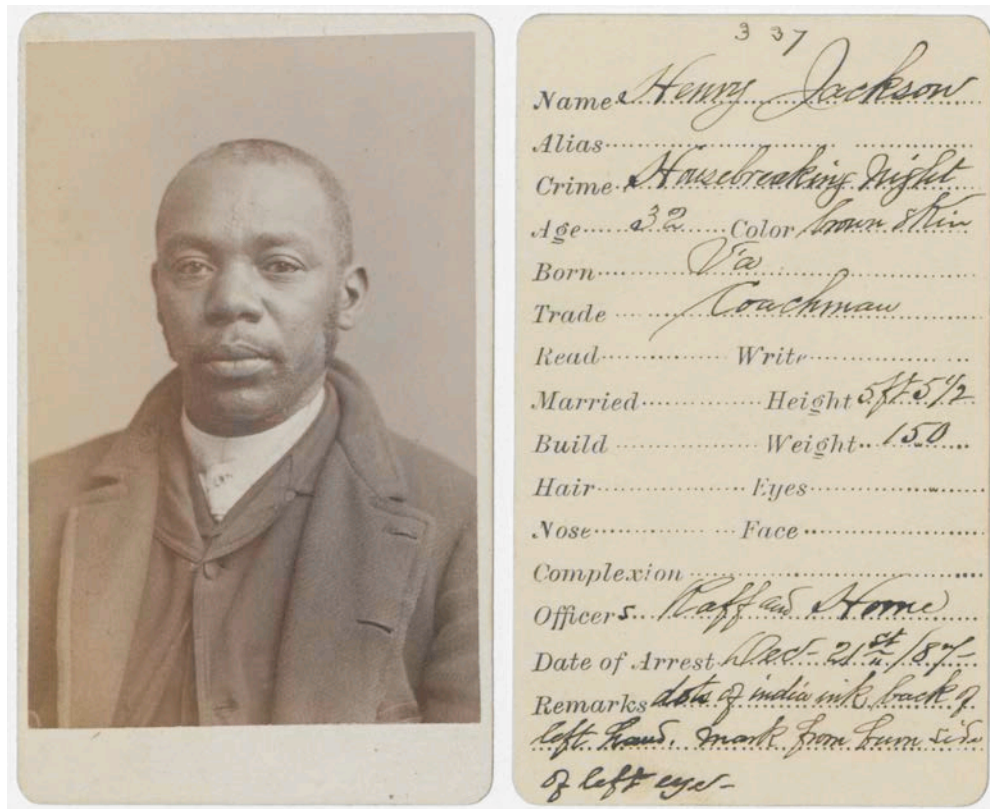 337
Name Henry Jackson
Alias
Crime Housebreaking Night
Age 32 Color brown skin
Born Va
Trade Coachman
Read Write
Married Height 5ft 5 1/2
Build Weight 150
Hair Eyes
Nose Face
Complexion
Officers. Raff and Horne
Date of Arrest Dec - 21st /87
Remarks dots of india ink back of
left hand. mark from burn side
of left eye-